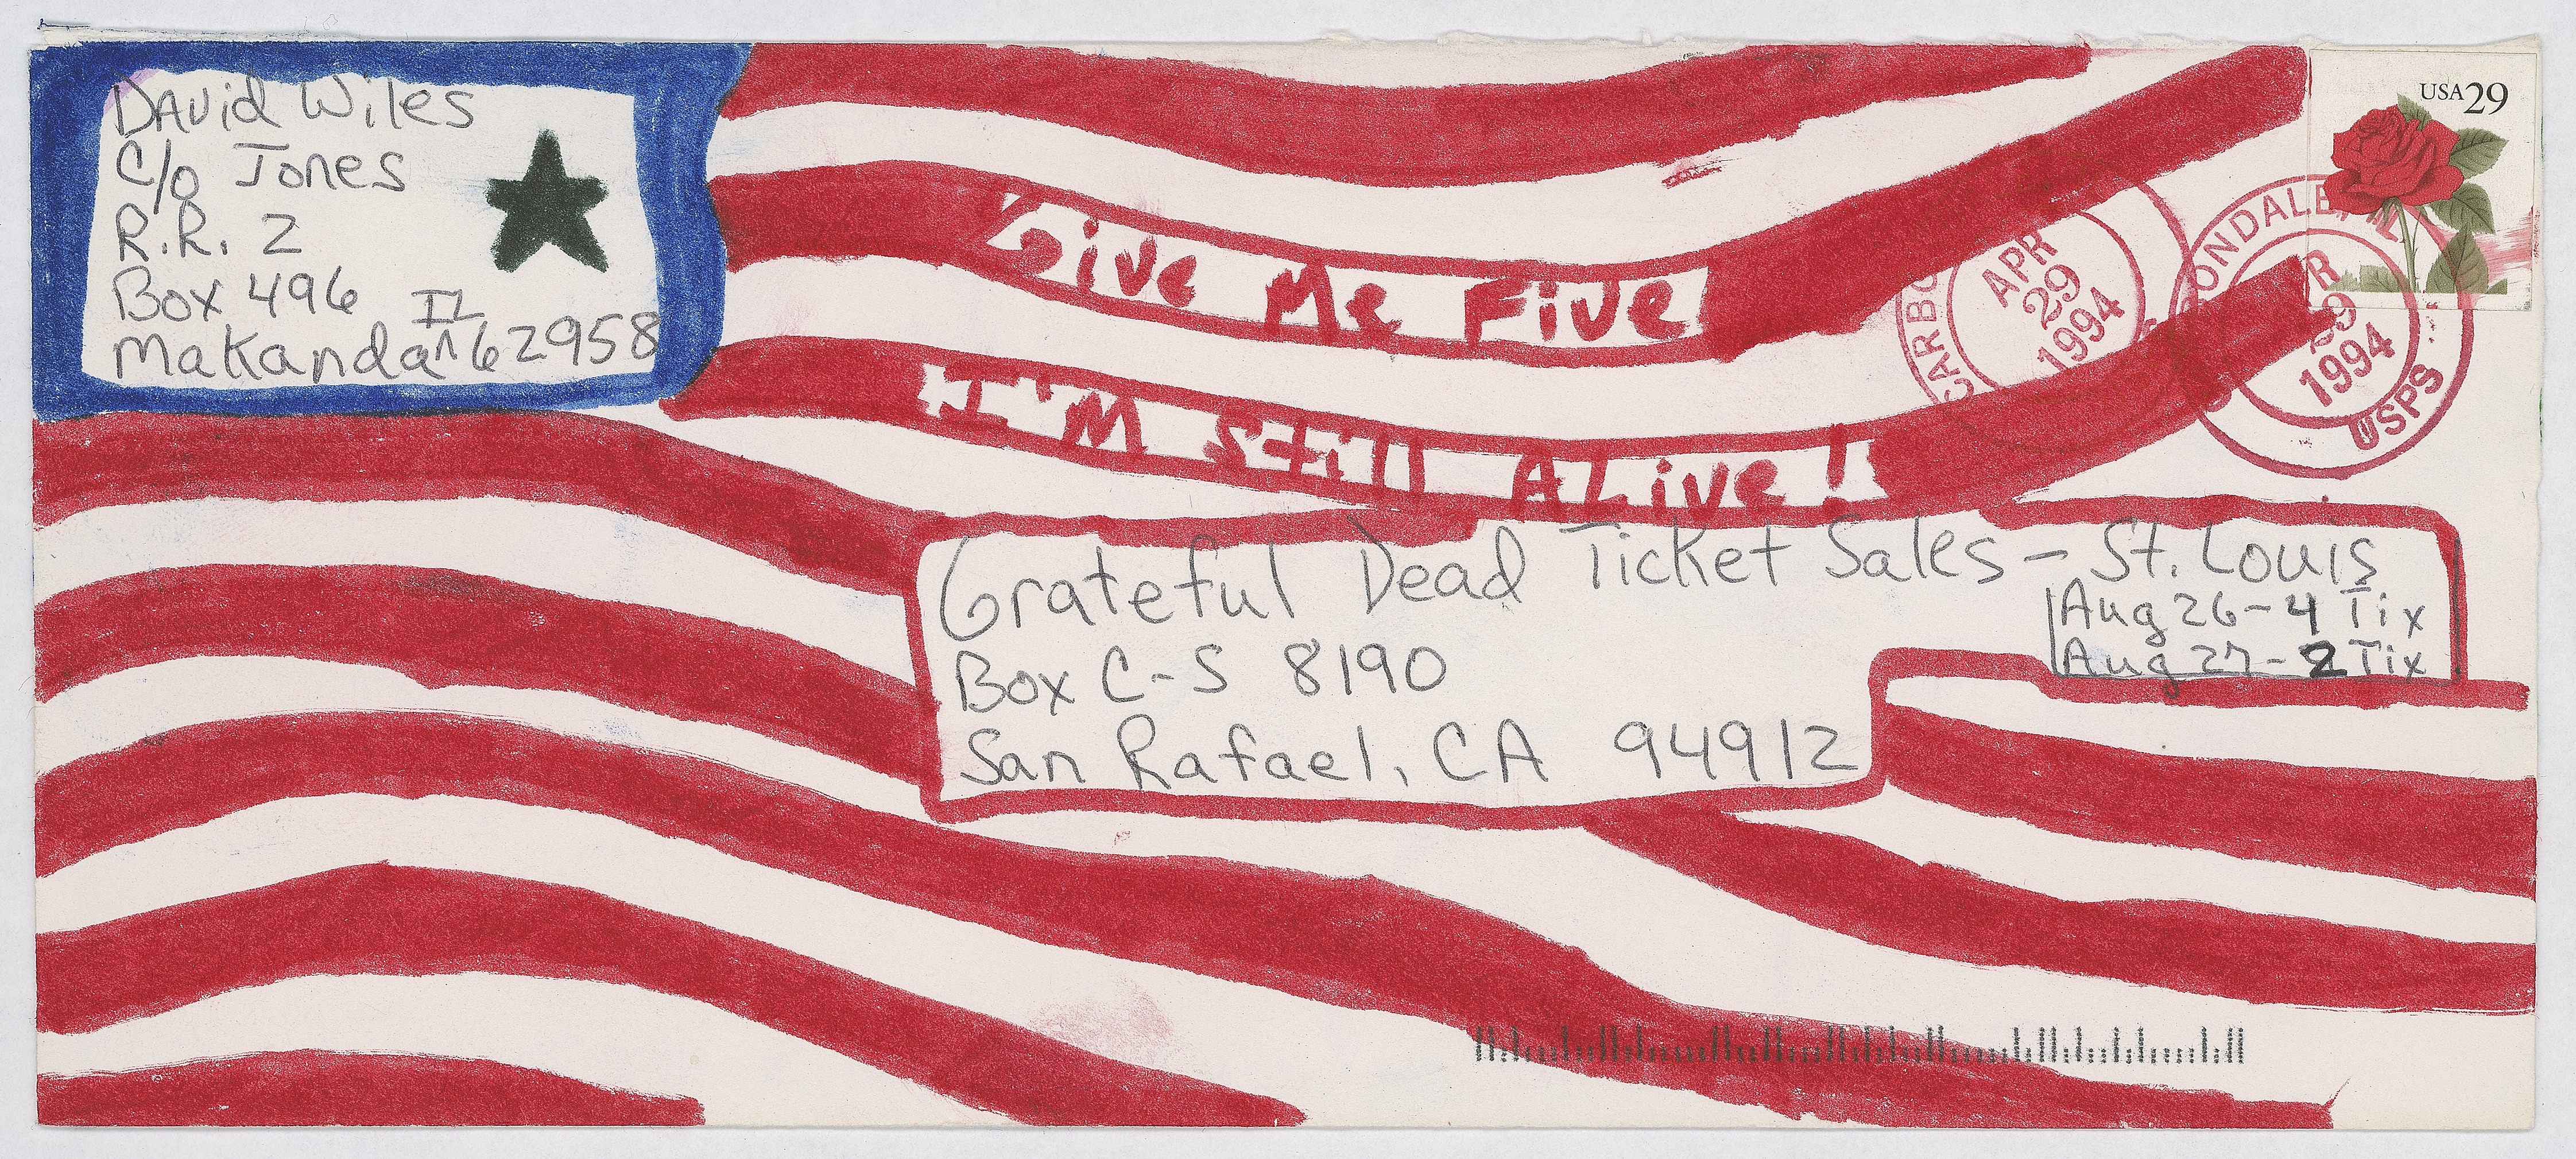 David Wiles
C/o Jones
R.R. 2
Box 496
Makanda IL 62958
USA 29
Give Me Five
I'M Still ALive!
CARBO
APR
29
1994
BONDALE,
R
29
1994
USPS
Grateful Dead Ticket Sales - St. Louis
Aug 26 - 4 Tix
Aug 27 - 2 Tix
Box C-S 8190
San Rafael, CA 94912